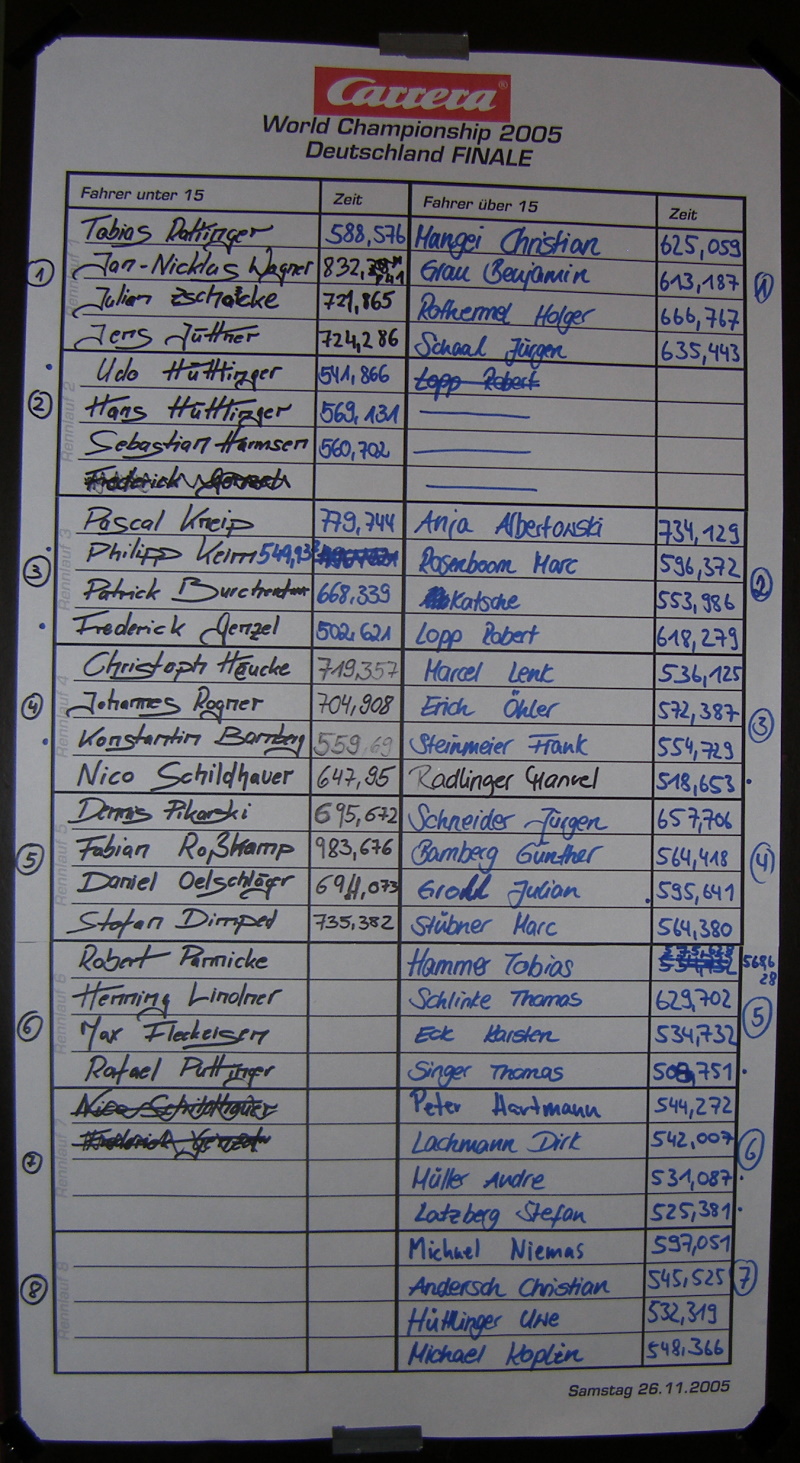 Carrera
World Championship 2005
Deutschland FINALE
Fahrer unter 15 Zeit Fahrer über 15 Zeit
Tobias Rattinger 588,576 Hangei Christian 625,059
1 Rennlauf 1 Jan-Nicklas Wagner 832, Grau Benjamin 613,187 1
Julian Zschätcke 721,865 Rothermel Holger 666,767
Jens Jüttner 724,286 Schaal Jürgen 635,443
Udo Hüttlinger 541,866 Lopp Robert
2 Rennlauf 2 Hans Hüttlinger 569,131
Sebastian Harmsen 560,702
Frederick Genzel
Pascal Kneip 779,744 Anja Albertowski 734,129
3 Rennlauf 3 Philipp Keim 549,93 Rosenboom Marc 596,372 2
Patrick 668,339 Katsche 553,986
Frederick Genzel 502,621 Lopp Robert 618,279
Christoph Häucke 719,357 Marcel Lenk 536,125
4 Rennlauf 4 Johannes Rogner 704,908 Erich Öhler 572,387 3
Konstantin Bamberg 559,69 Steinmeier Frank 554,729
Nico Schildhauer 647,95 Radlinger 518,653
Dennis Pikarski 695,672 Schneider Jürgen 657,706
5 Rennlauf 5 Fabian Roßkamp 983,676 Bamberg Günther 564,418 4
Daniel Oelschläger 694,073 Groll Julian 595,641
Stefan Dimped 735,382 Stübner Marc 564,380
Robert Parnicke Hammer Tobias 575,628 534,732 569,6 28
Henning Lindner Schlinke Thomas 629,702
6 Rennlauf 6 Max Fleckeisen Eck Karsten 534,732 5
Rafael Puttinger Singer Thomas 508,751
Nico Schildhauer Peter Hartmann 544,272
Frederick Genzel Lachmann Dirk 542,007 6
7 Rennlauf 7 Müller Andre 531,087
Latzberg Stefan 525,381
Michael Niemas 597,051
8 Rennlauf 8 Andersch Christian 545,525 7
Hüttlinger Uwe 532,319
Michael Koplin 548,366
Samstag 26.11.2005